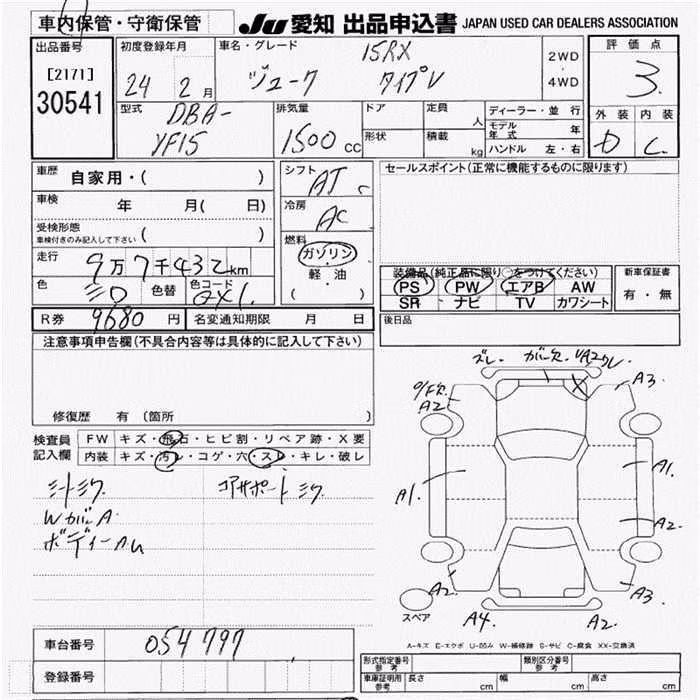 車内保管・守衛保管
JU 愛知 出品申込書 JAPAN USED CAR DEALERS ASSOCIATION
出品番号
[2171]
30541
初度登録年月
24 2月
車名・グレード
15RX
ジューク タイプV
2WD
・
4WD
評価点
3.
外装 内装
D C.
型式
DBA-
YF15
排気量
1500 cc
ドア
定員 人
形状
積載 kg
ディーラー・並行
モデル年式 年
ハンドル 左・右
車歴 自家用・( )
車検 年 月( 日)
受検形態
車検付きのみ記入して下さい ( )
走行 9万7千432km
色 シロ 色替 色コード QX1.
シフト AT C
冷房 AC
燃料
ガソリン
軽・油
( )
セールスポイント(正常に機能するものに限ります)
装備品(純正品に限り○をつけてください)
PS PW エアB AW
SR ナビ TV カワシート
新車保証書
有・無
R券 9680円 名変通知期限 月 日
後日品
注意事項申告欄(不具合内容等は具体的に記入して下さい)
修復歴 有(箇所 )
検査員
記入欄
FW キズ・飛石・ヒビ割・リペア跡・X要
内装 キズ・汚レ・コゲ・穴・スレ・キレ・破レ
シートシワ
コアサポートシワ
WカバーA
ボディーAU
ズレ カバー欠 UA2ワレ
O/FR
A2
A3
A1.
A1.
A2
A2
A3
A4.
A2.
スペア
A-キズ E-エクボ U-凹み W-補修跡 S-サビ C-腐食 XX-交換済
車台番号 054797
登録番号
形式指定番号
参考
類別区分番号
車庫証明用
参考
長さ cm 幅 cm 高さ cm